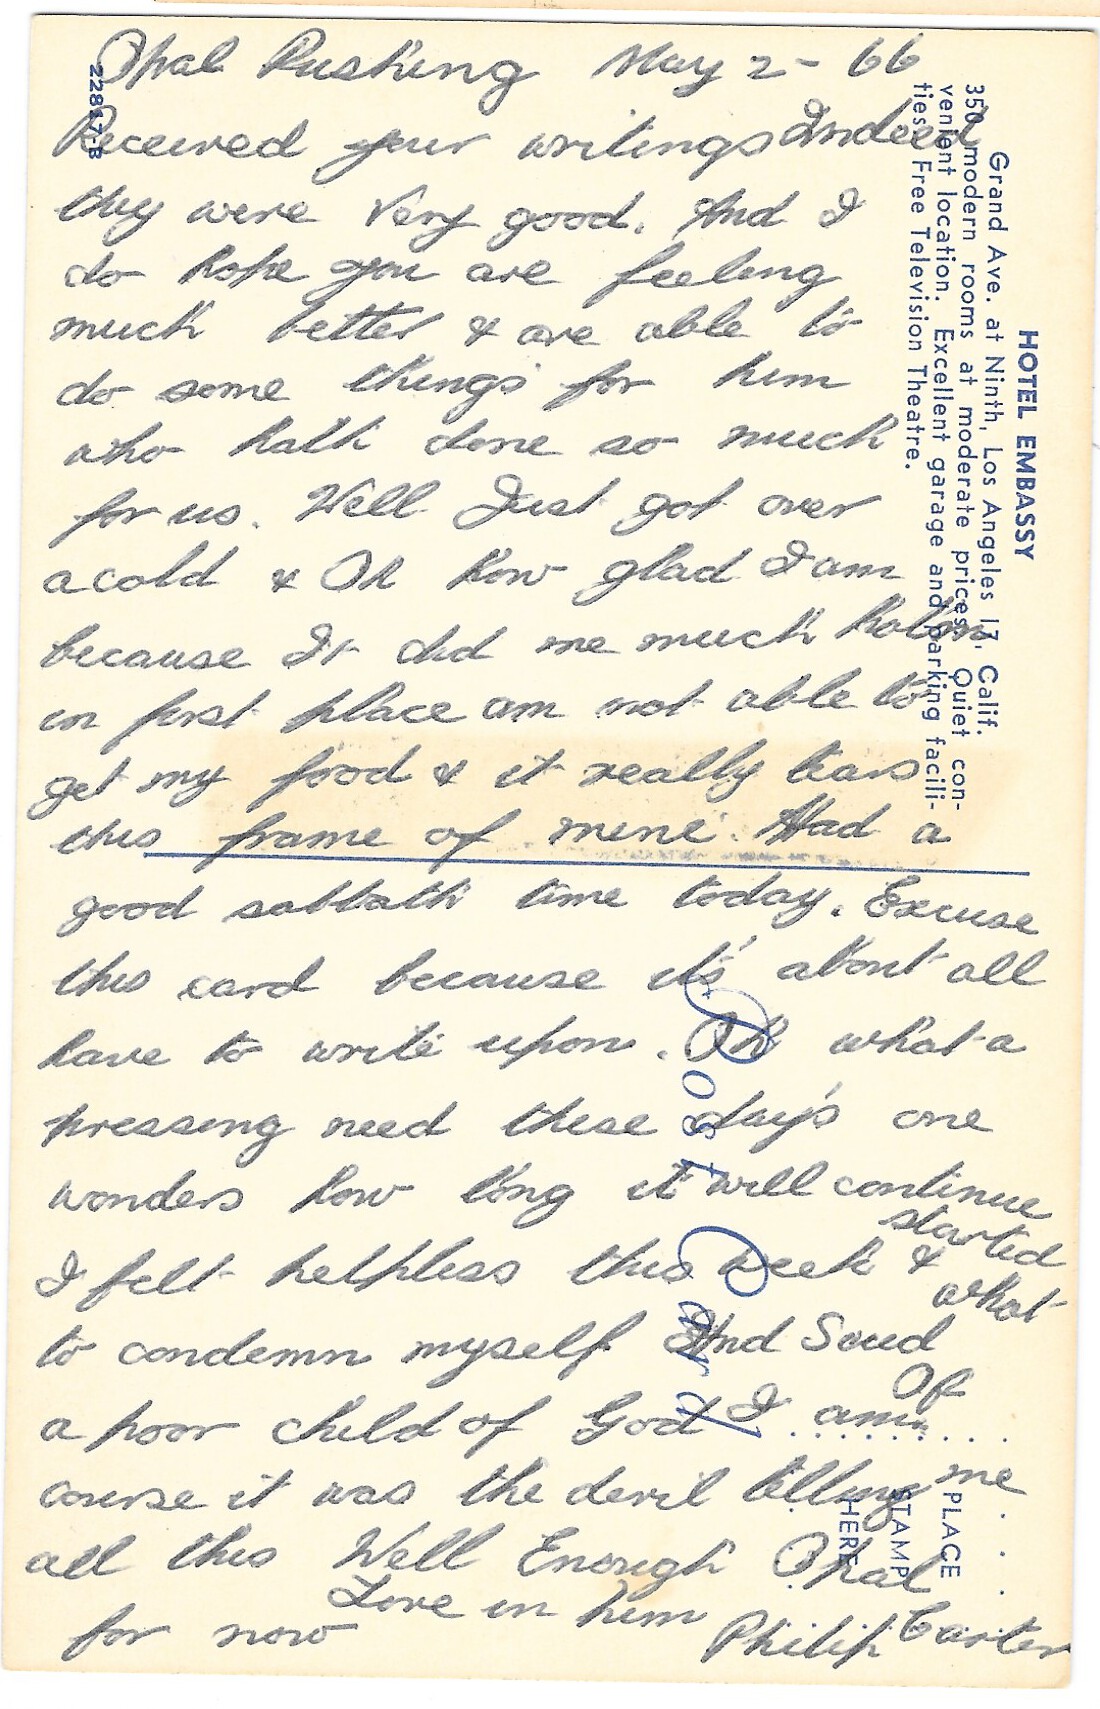 Opal Rushing May 2 - 66
Received your writings Indeed
they were very good. And I
do hope you are feeling
much better & are able to
do some things for him
who hath done so much
for us. Well Just got over
a cold & Oh how glad I am
because It did me much harm
in first place am not able to
get my food & it really tears
this frame of mine. Had a
good sabbath time today. Excuse
this card because it's about all
have to write upon. Oh what a
pressing need these day's one
wonders how long it will continue
I felt helpless this week & started
to condemn myself And Said what
a poor child of God I am. Of
course it was the devil telling me
all this Well Enough Opal
for now Love in him Philip Carter
HOTEL EMBASSY
Grand Ave. at Ninth, Los Angeles 17, Calif.
350 modern rooms at moderate prices. Quiet con-
venient location. Excellent garage and parking facili-
ties. Free Television Theatre.
Post Card
PLACE
STAMP
HERE